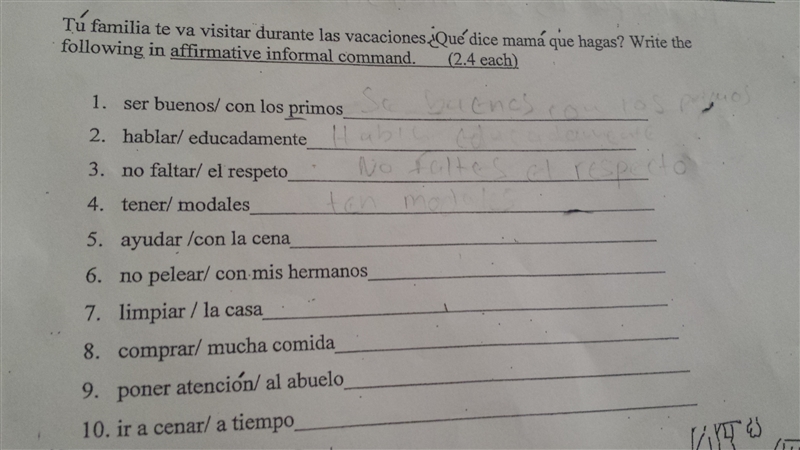 Tú familia te va visitar durante las vacaciones. ¿Qué dice mamá que hagas? Write the
following in affirmative informal command. (2.4 each)
1. ser buenos/ con los primos Se buenos con los primos
2. hablar/ educadamente Habla educadamente
3. no faltar/ el respeto No faltes el respecto
4. tener/ modales ten modales
5. ayudar /con la cena
6. no pelear/ con mis hermanos
7. limpiar / la casa
8. comprar/ mucha comida
9. poner atención/ al abuelo
10. ir a cenar/ a tiempo